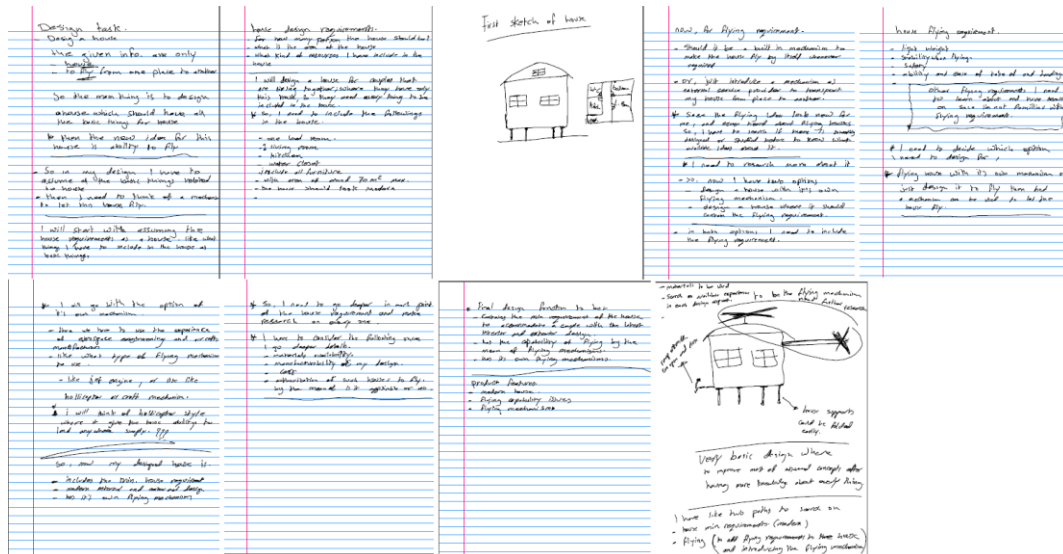 Design task.
- Design a house
the given info. are only
- house
- to fly from one place to another
So the main thing is to design
a house which should have all
the basic thing for house
* then the new idea for this
house is ability to fly
- So in my design I have to
assume all the basic things related
to house
- then I need to think of a mechanism
to let this house fly.
I will start with assuming the
house requirements as a house. like what
things I have to include in the house as
basic things.
house design requirements.
- For how many person the house should be?
- what is the area of the house
- what kind of I have to include in the
house
I will design a house for couples that
are living together, where they have only
this house, so they need every thing to be
included in the house.
* So, I need to include the followings
in the house.
- one bed room.
- living room
- kitchen
- water closet
include all furniture
- with area of around 70 m² max.
- the house should look modern
First sketch of house
now, for flying requirement.
- Should it be a built in mechanism to
make the house fly by itself whenever
required
- or, just introduce a mechanism as
external service provider to transport
my house from place to another.
* Since the flying idea look new for
me, and never heard about flying houses
So, I have to search if there is already
designed or studied before to know what
available ideas about it.
* I need to research more about it
- So, now I have two options
- Design a house with its own
flying mechanism.
- design a house where it should
contain the flying requirement.
- in both options I need to include
the flying requirement.
house flying requirement
- light weight
- stability when flying.
- Safety
- ability and ease of take of and landing
other flying requirements I need
but learn about and have
as Since I'm not familiar with
flying requirement.
* I need to decide which option
I need to design for,
* flying house with its own mechanism or
just design it to fly then add
a mechanism can be used to let the
house fly.
* I will go with the option of
it's own mechanism
- Here we have to use the experience
of aerospace engineering and aircrafts
manufacturer
- like what type of flying mechanism
to use.
- like jet engine, or use like
hellicopter or craft mechanism.
I will think of hellicopter style
where it give the house ability to
land anywhere simply. ???
So, now my designed house is.
- includes the min. house requirement
- modern internal and external design
- has it's own flying mechanism
* So, I need to go deeper in each point
of the house requirement and make
research on every one.
* I have to consider the following when
I go deeper details.
- materials availability.
- manufacturability of my design.
- cost
- authorization of such houses to fly.
by the mean of is it applicable or no.
* final design function to be:
- Contains the min requirement of the house
to accommodate a couple with the latest
interior and exterior design
- has the capability of flying by the
mean of flying mechanisms.
- has its own flying mechanisms.
product features
- modern house.
- flying capability issues
- flying mechanisms
- materials to be used
to be the flying mechanism
need further
research
house supports
could be folded
easily.
Very basic design where
to improve most of concepts after
having more knowledge about every thing
I have like two paths to search on
- house min requirements (modern)
- flying (to add flying requirements to these house
and introducing the flying mechanism)